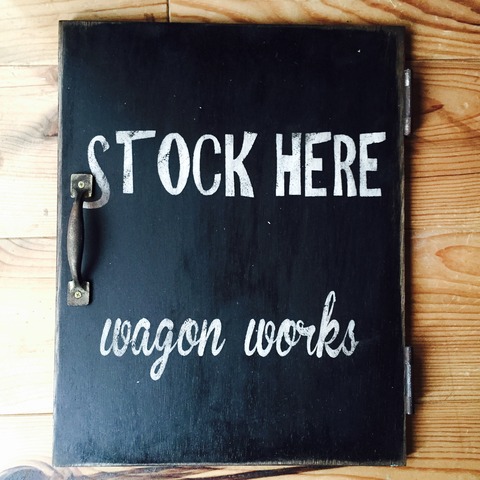 STOCK HERE
wagon works